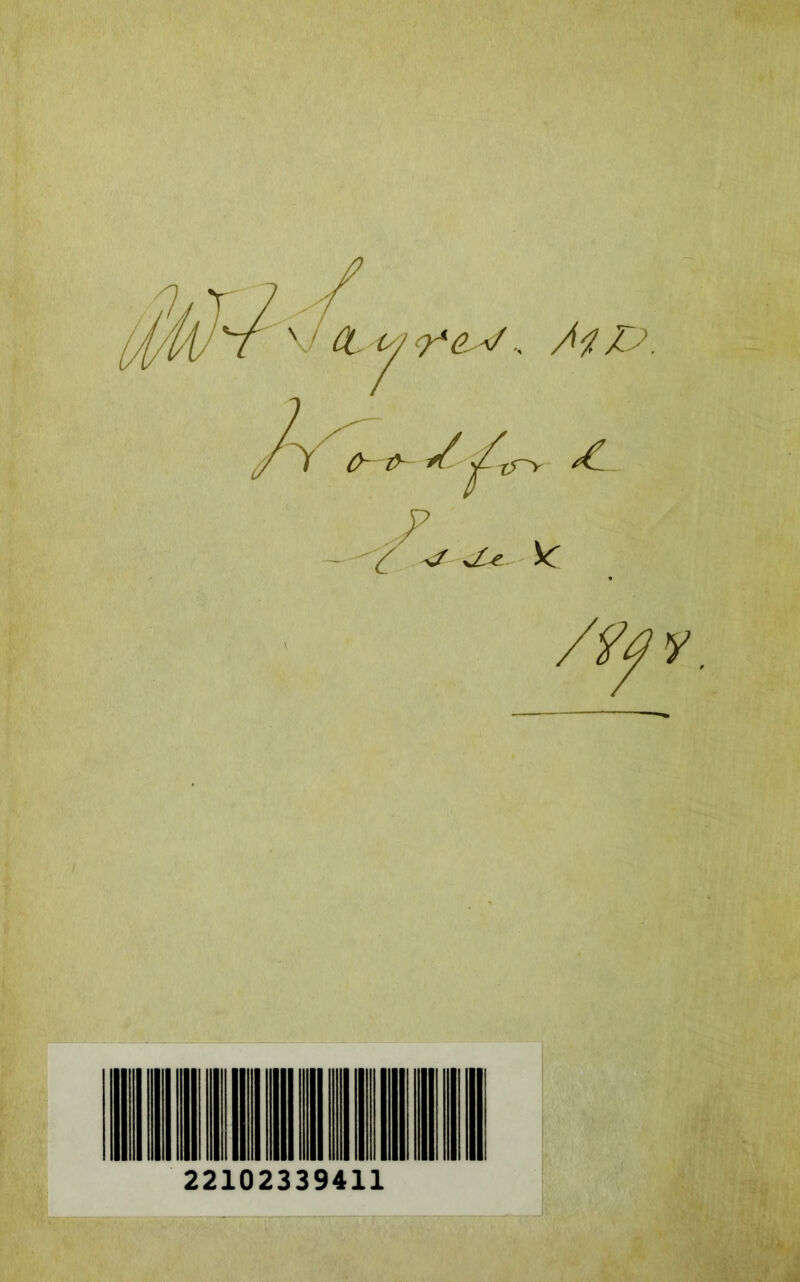 Sayres. MD.
Woodford
Essex
1898.
22102339411